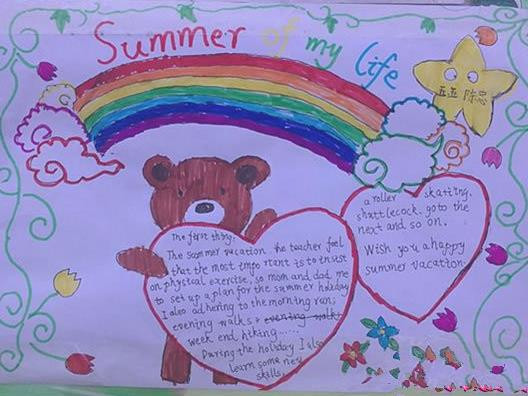 Summer of my life
五五 陈忠
The first thing:
The summer vacation the teacher feel
that the most impo rtant is to insist
on physical exercise, so mom and dad me
to set up a plan for the summer holiday
I also adhering to the morning run,
evening walks, evening walks
week end hiking......
During the holiday I also
learn some new
skills,
a roller skatiing.
shattlecock. goto the
next and so on.
Wish you a happy
summer vacation.